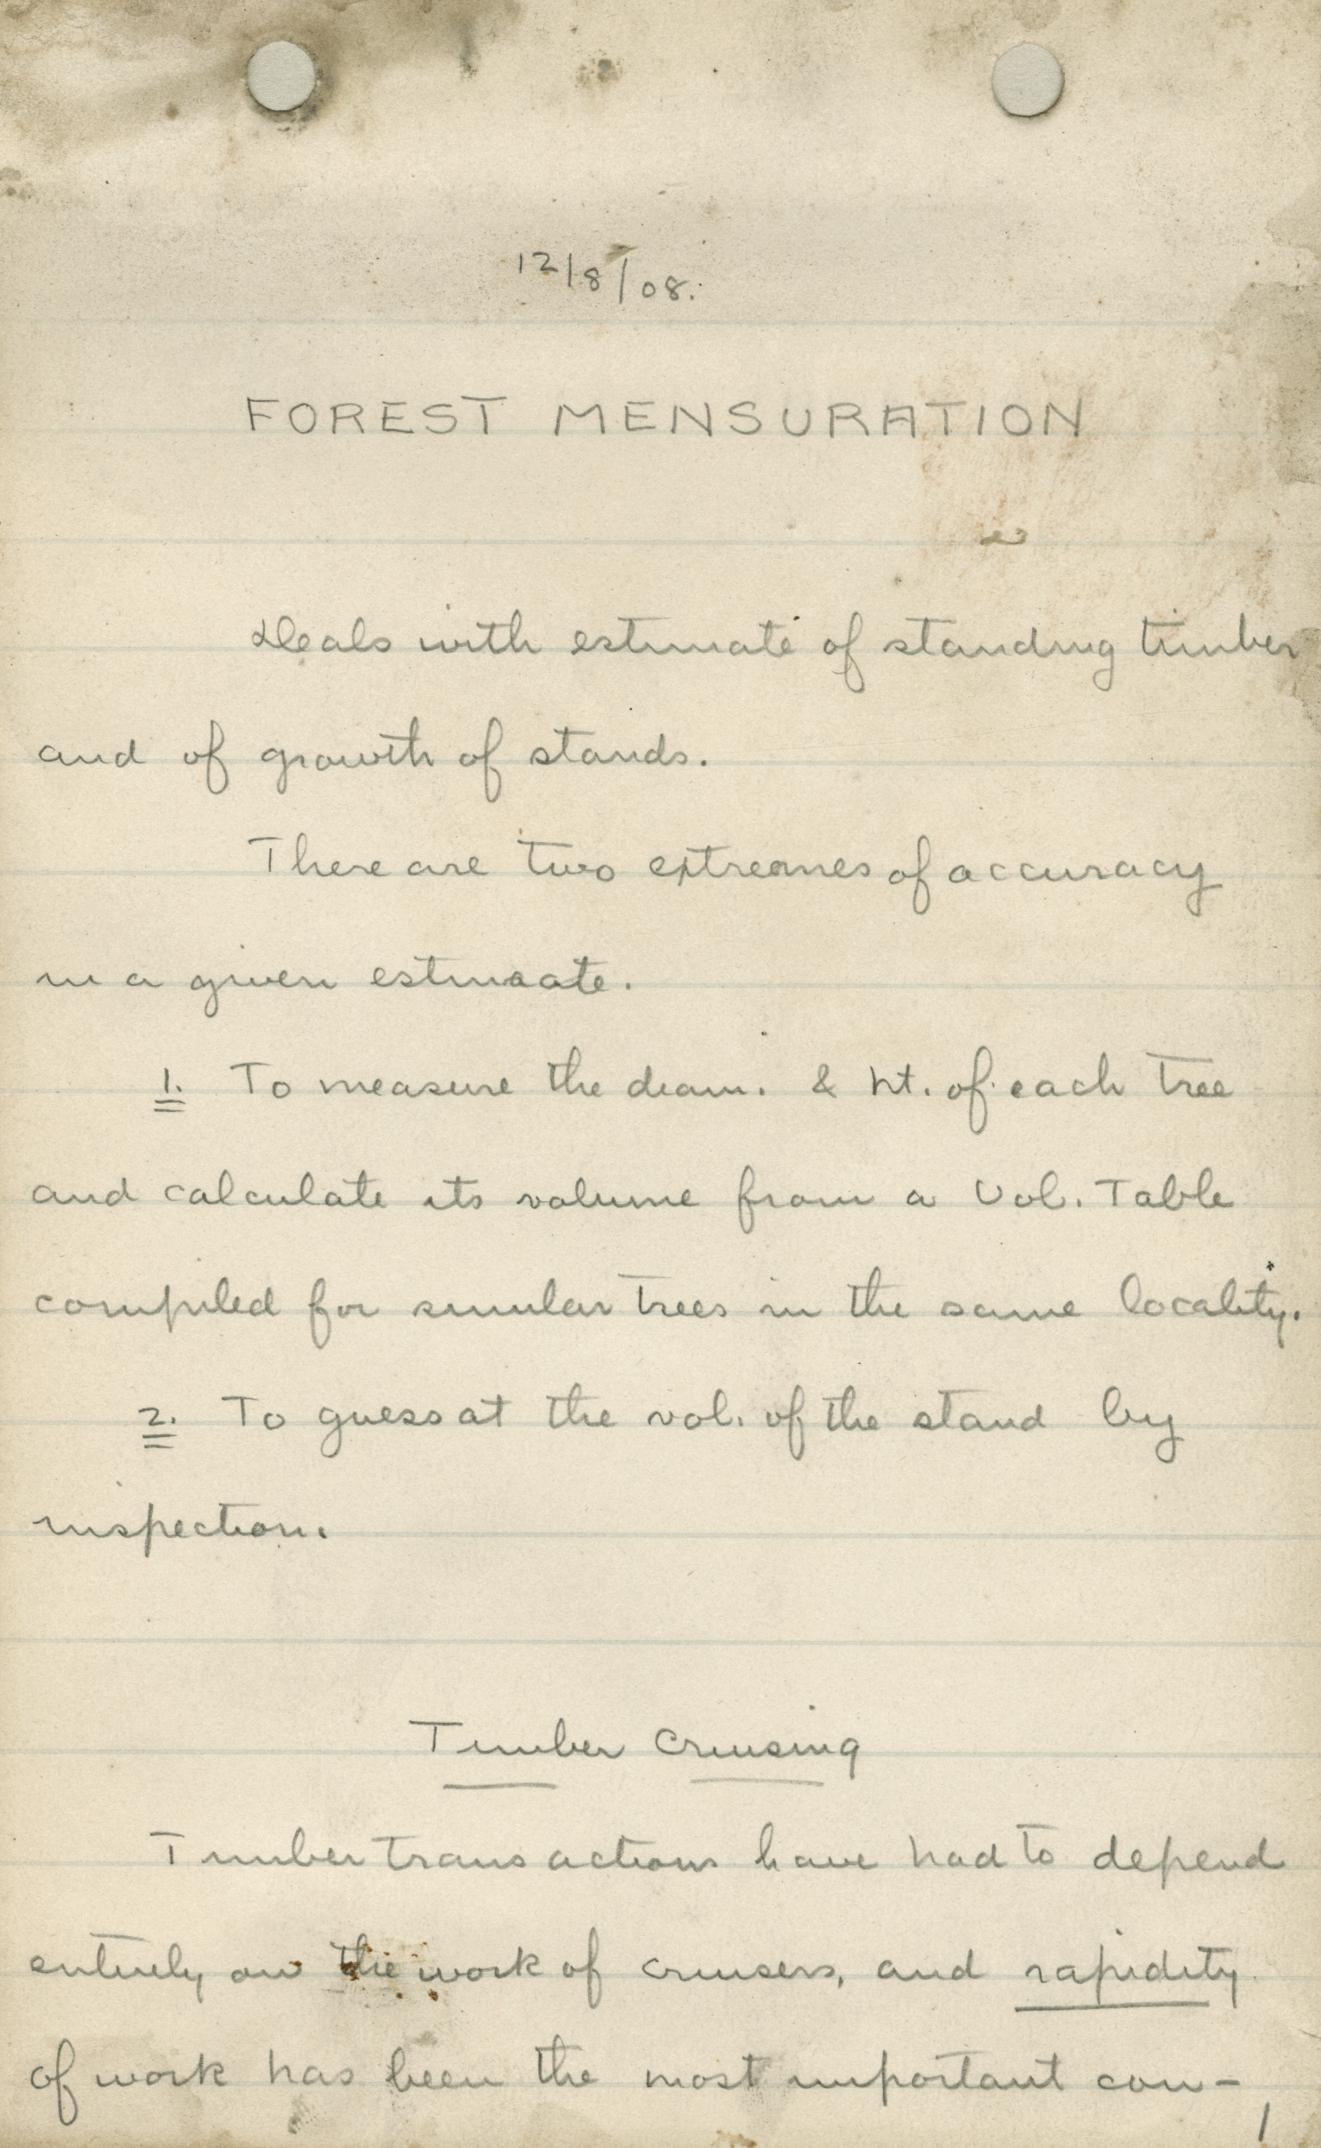 12/8/08.
FOREST MENSURATION
Deals with estimate of standing timber
and of growth of stands.
There are two extreames of accuracy
in a given estimate.
1. To measure the diam. & ht. of each tree
and calculate its volume from a Vol. Table
compiled for similar trees in the same locality.
2. To guess at the vol. of the stand by
inspection.
Timber Cruising
Timber transactions have had to depend
entirely on the work of cruisers, and rapidity
of work has been the most important con-
1